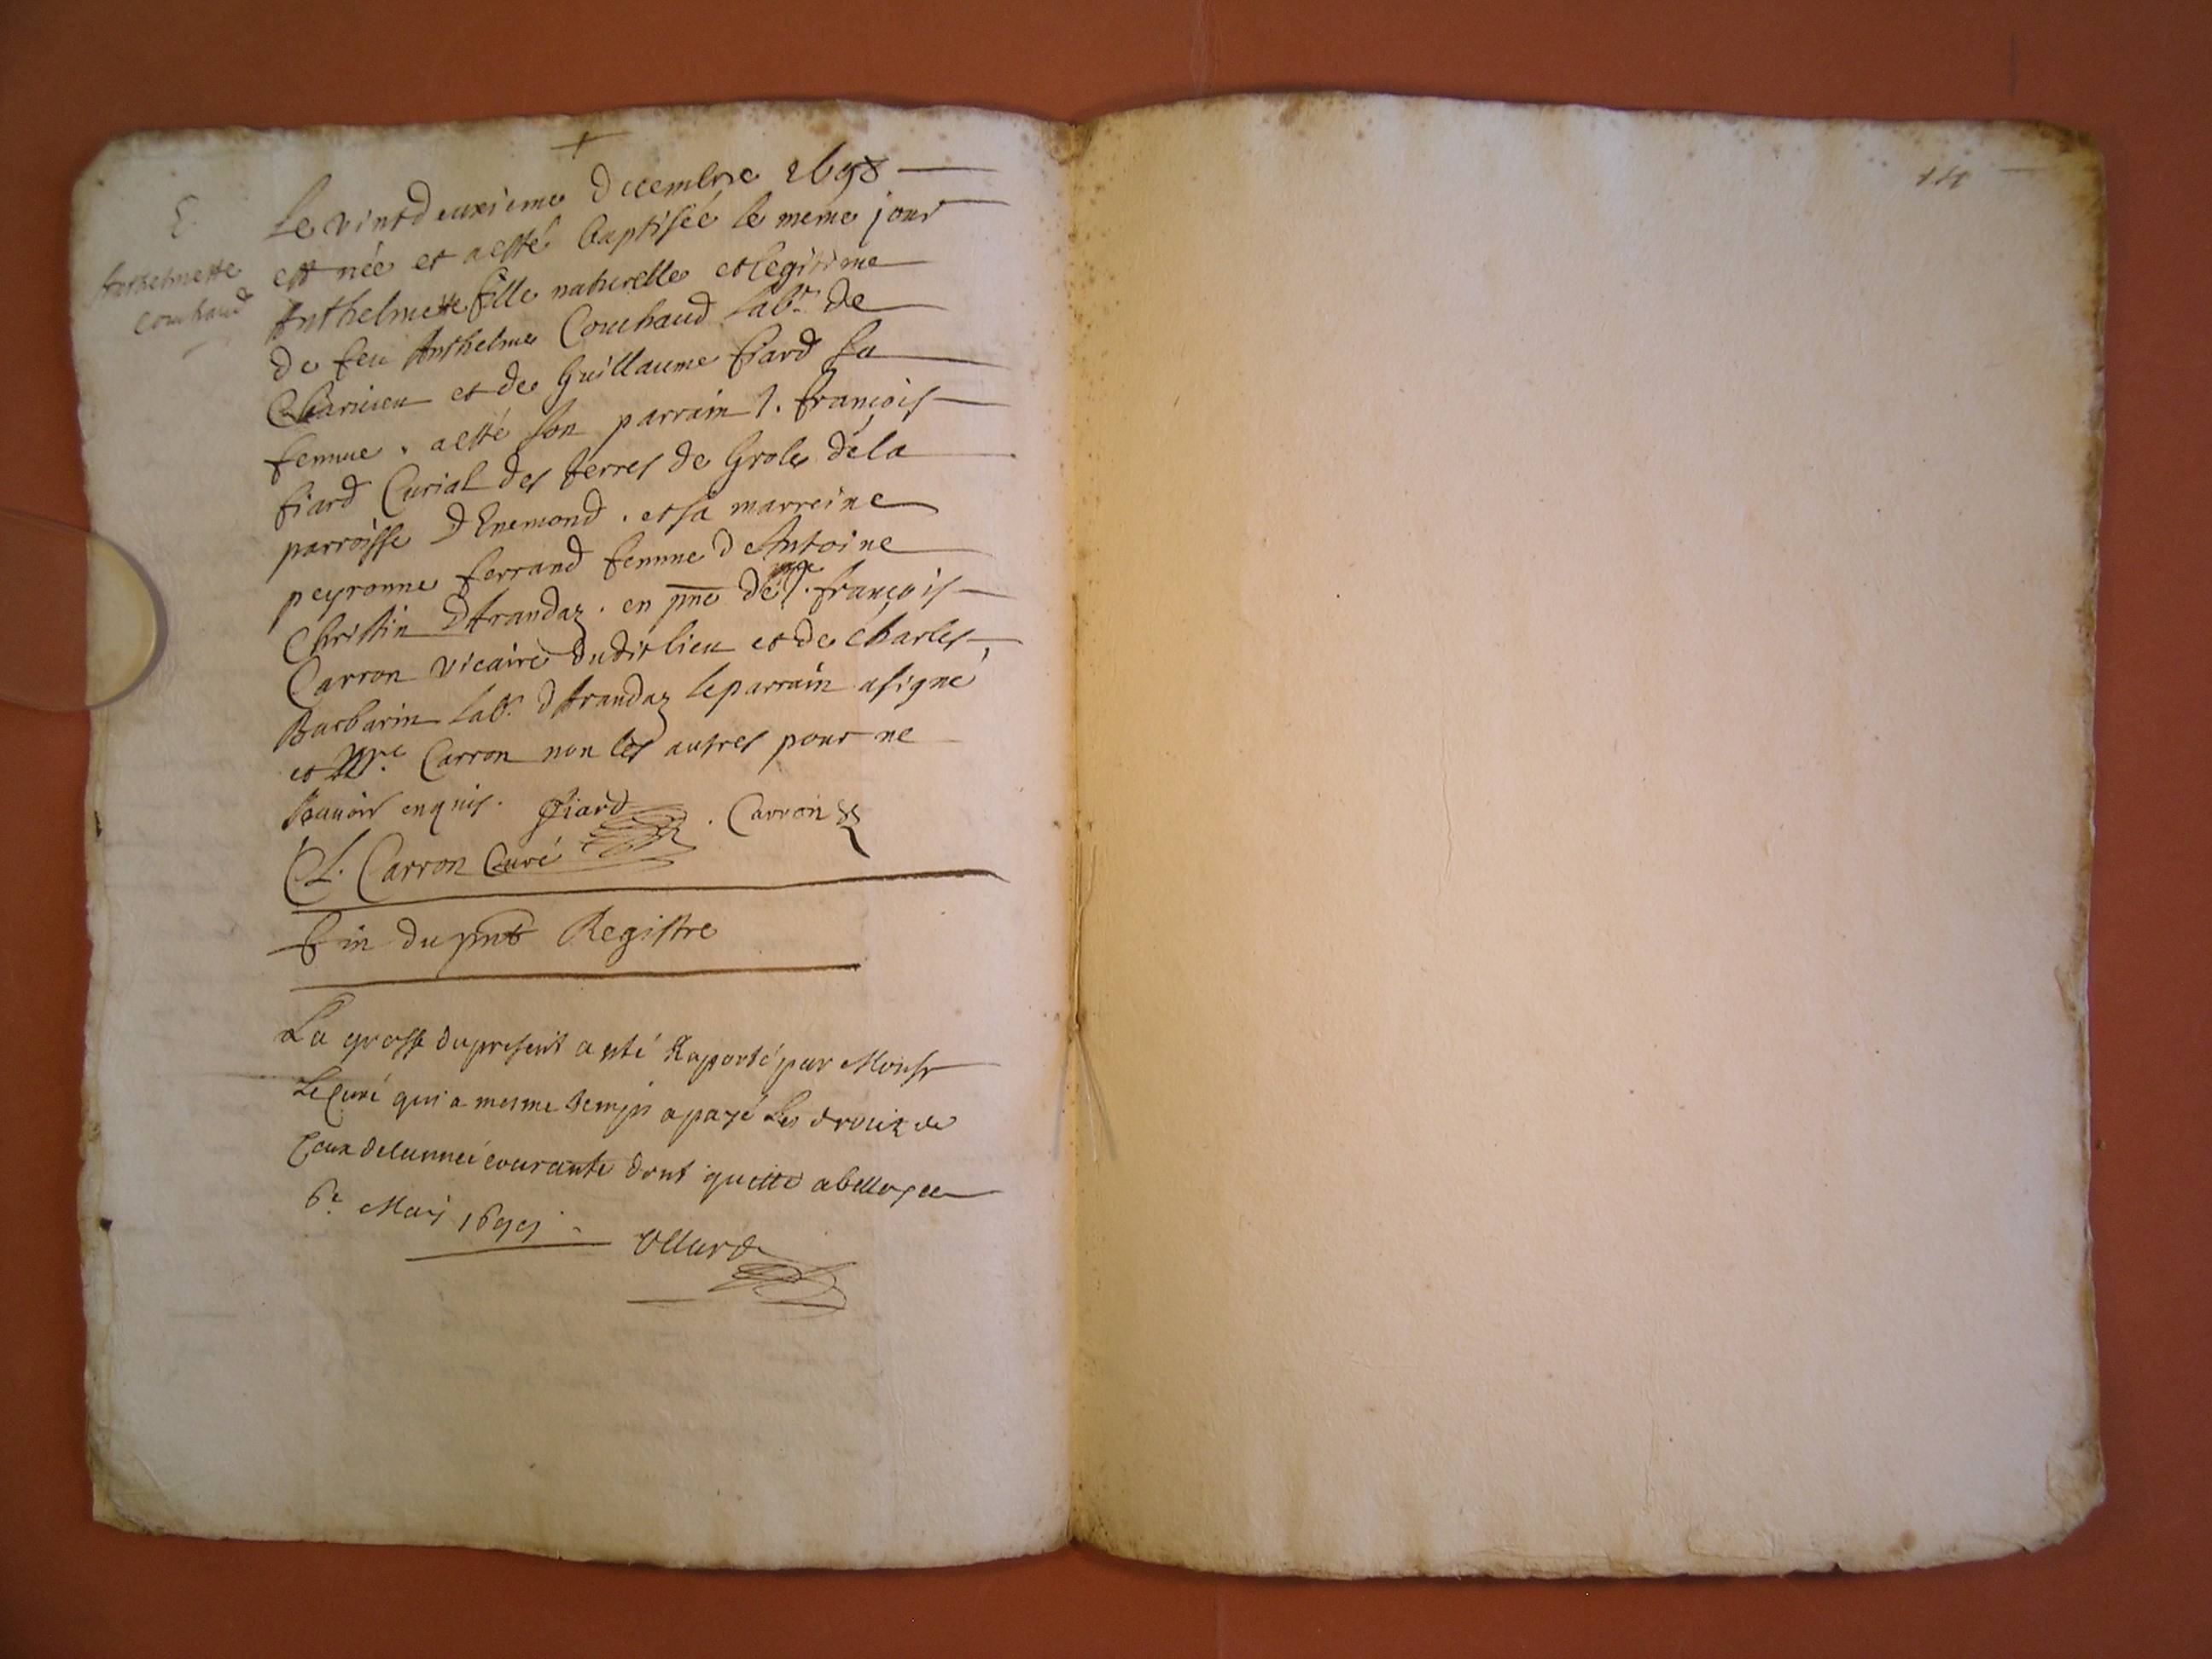 Le vintdeuxieme decembre 1698
est née et a esté baptisée le meme jour
Anthelmette fille naturelle et legitime
de feu Anthelme Couchaud lab.r de
et de Guillaume fiard sa
femme. a esté son parrain s. françois
fiard Curial des terres de Grole de la
parroisse d'Enemond. et sa marreine
peyronne ferrand femme d'Antoine
Christin d'Arandaz. en pnce de mre. françois
Carron vicaire dudit lieu et de charles
Barbarin lab.r d'Arandaz le parrain a signé
et Mre. Carron non les autres pour ne
sçauoir enquis. fiard . Carron
Cl. Carron Curé
fin du pnt Registre
La grosse du present a esté Raporté par Monsr
Le Curé qui a mesme temps a payé Les droitz de
Ceux de lannée courante dont quitte a belley ce
6e. Mars 1699.
Anthelmette
couhaud
14